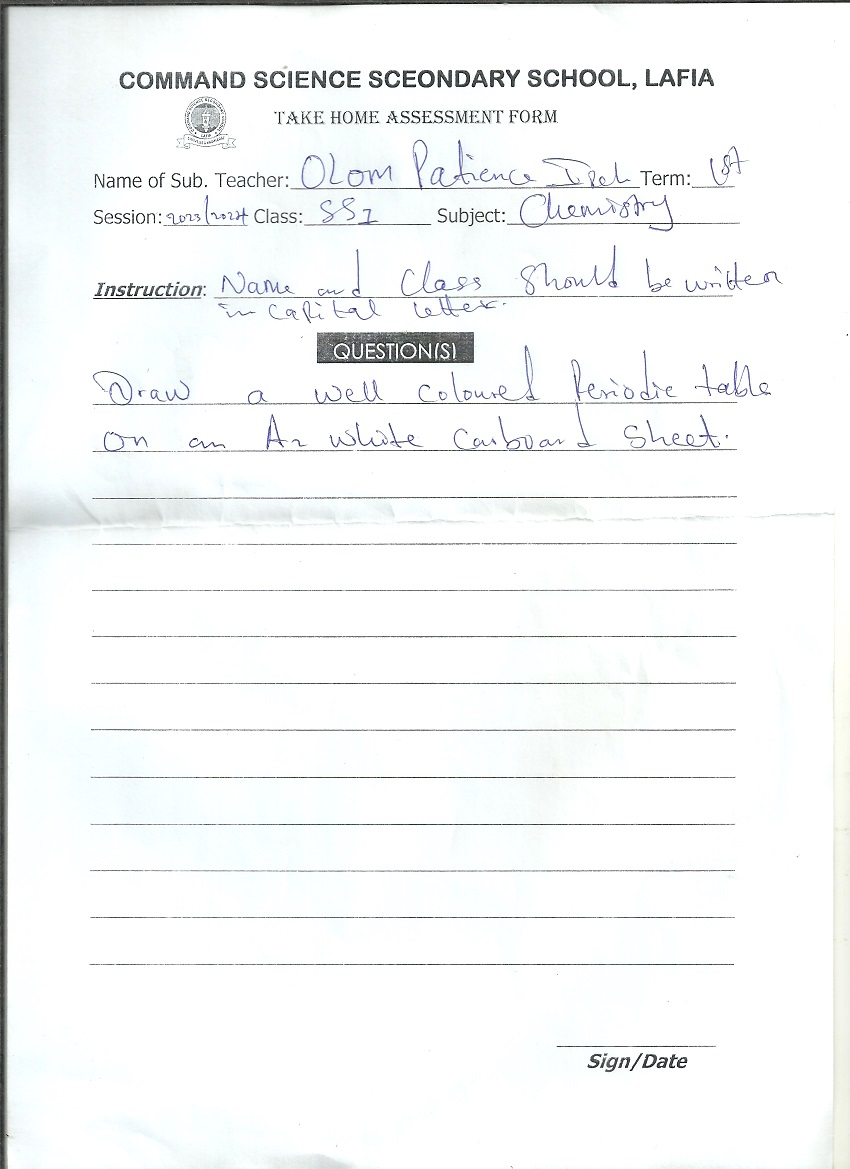 COMMAND SCIENCE SCEONDARY SCHOOL, LAFIA
TAKE HOME ASSESSMENT FORM
Name of Sub. Teacher: OLOM Patience Term: 1st
Session: 2023/2024 Class: SS1 Subject: Chemistry
Instruction: Name and Class should be written
in capital letter.
QUESTION(S)
Draw a well coloured Periodic table
on an A2 white Carboard Sheet.
Sign/Date